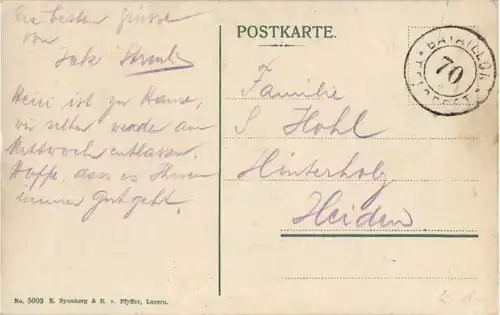 Die besten Grüsse
von
Jak.
Heiri ist zu Hause,
wir selber werden am
Mittwoch entlassen.
Hoffe, dass es Ihnen
immer gut geht.
POSTKARTE.
BATAILLON
70
Familie
S Hohl
Hinterholz
Heiden
No. 5003 E. Synnberg & R. v. Pfyffer, Luzern.